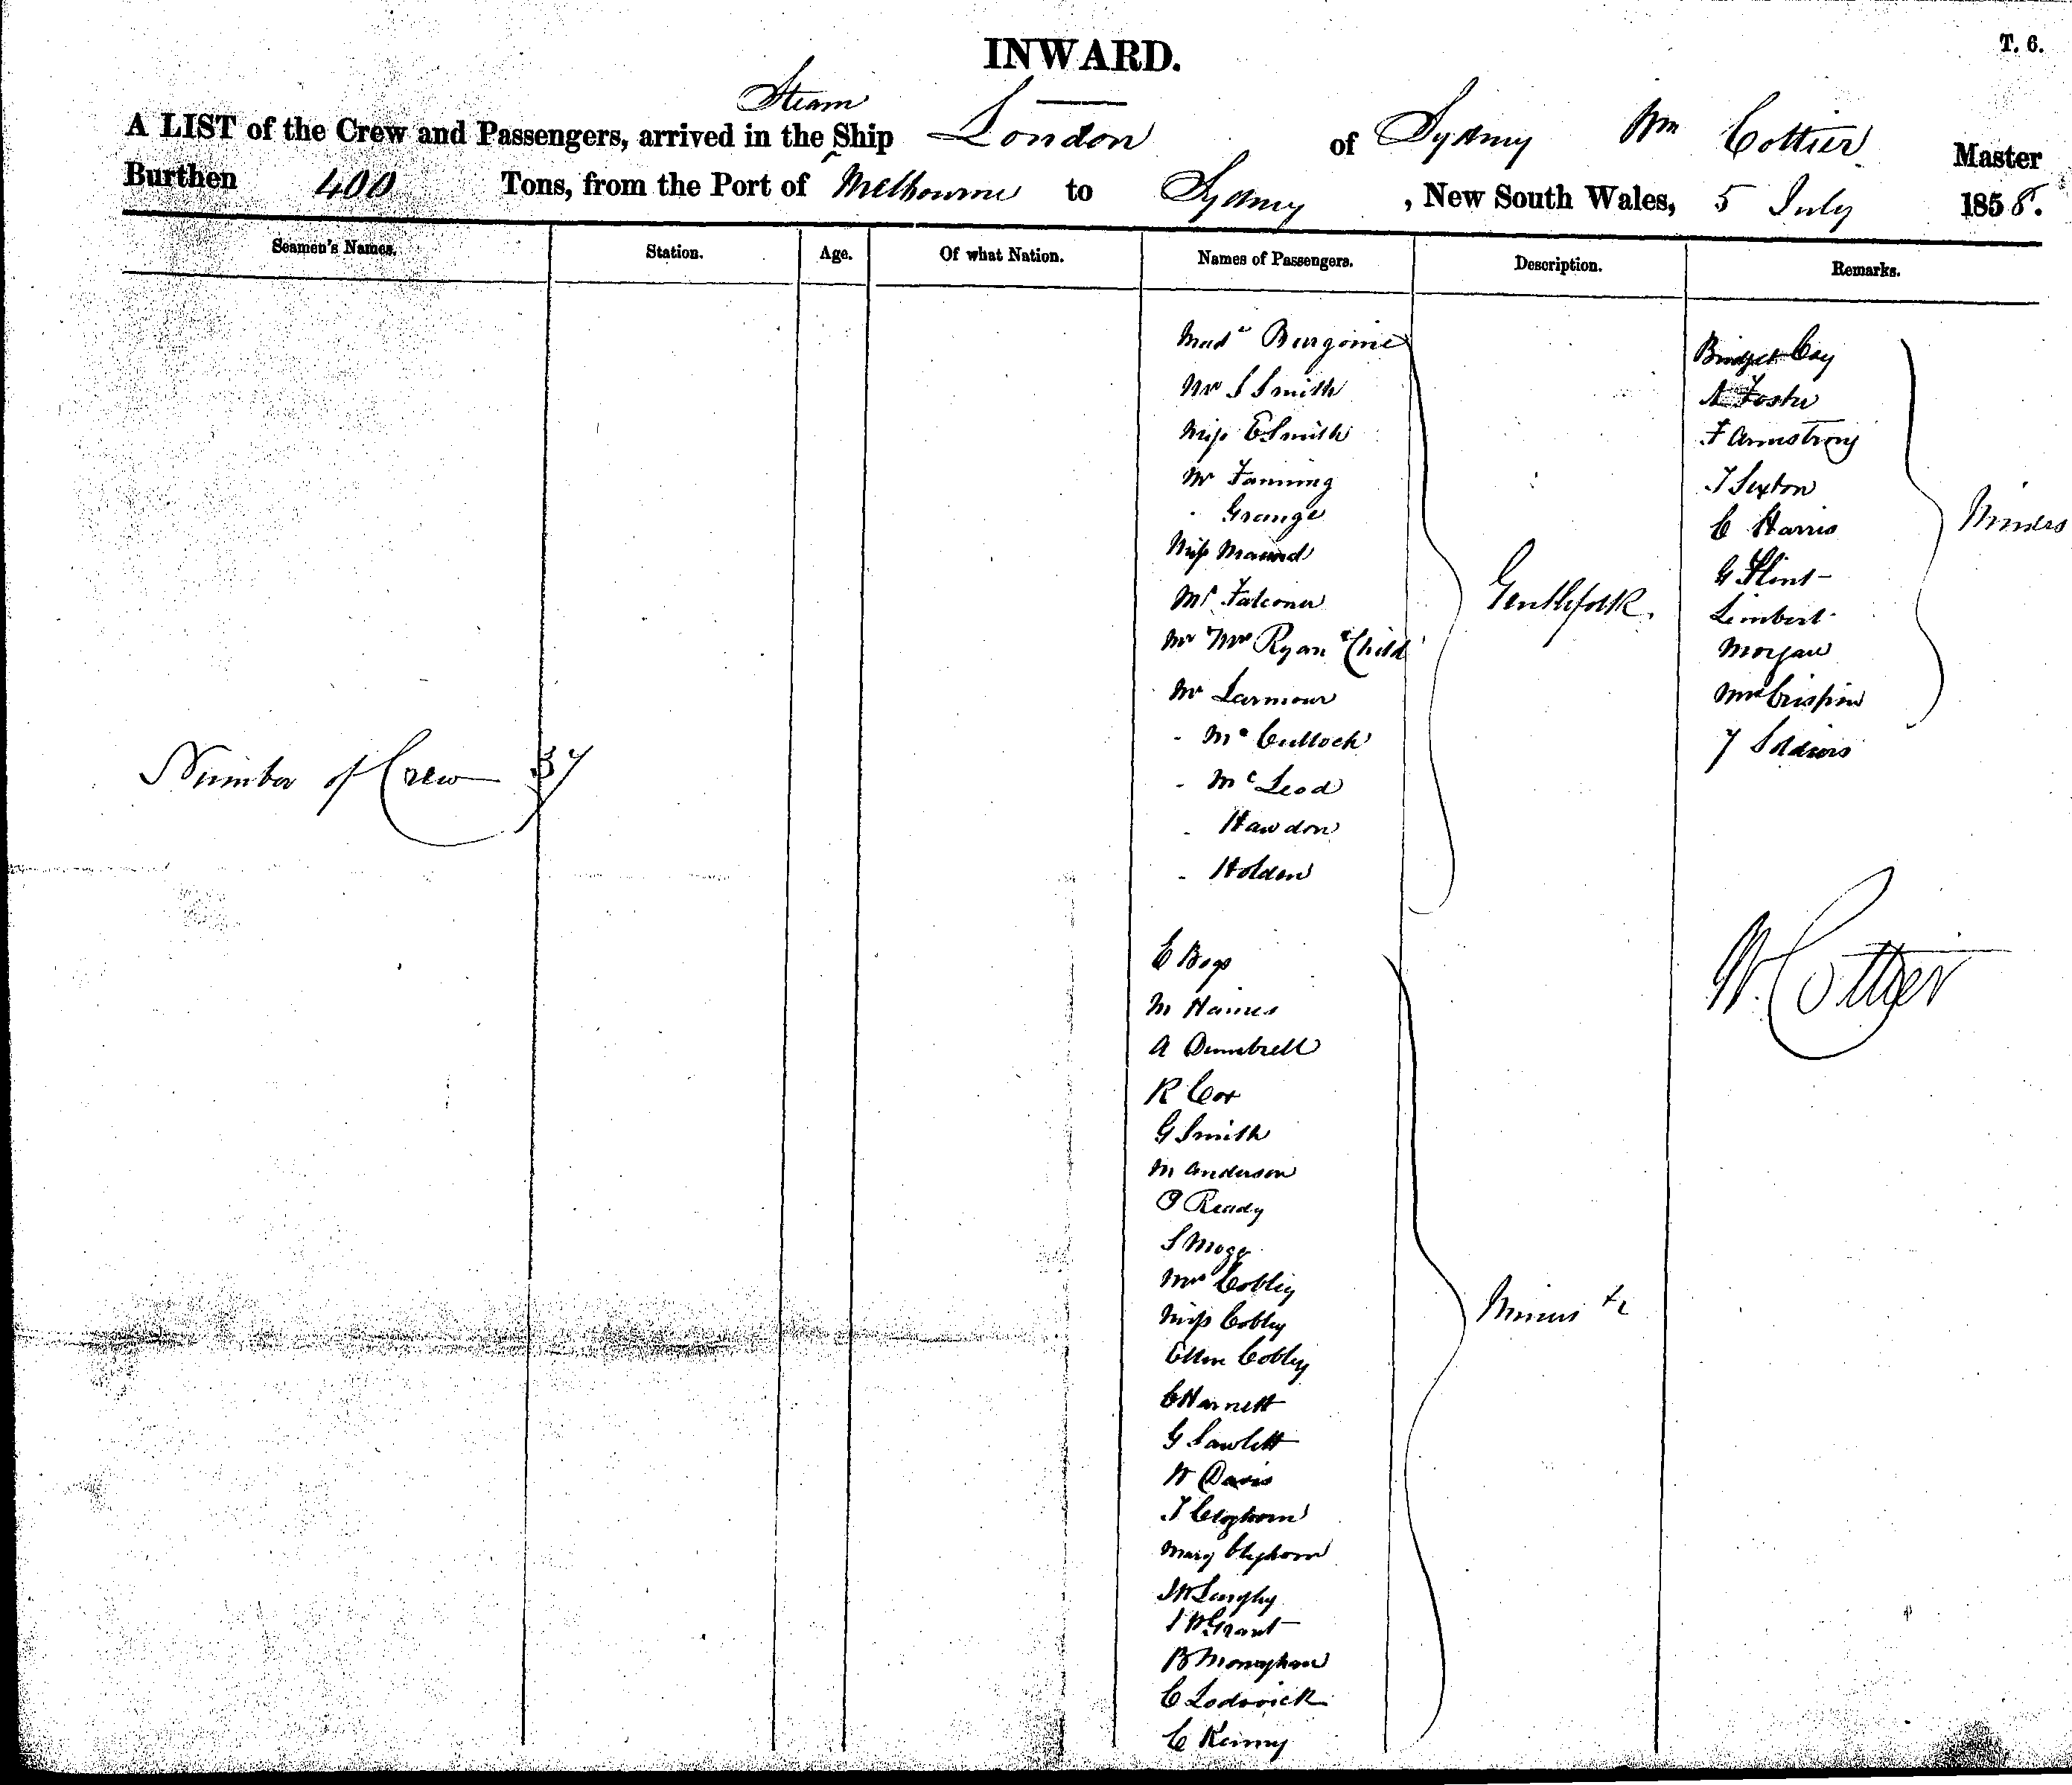 INWARD.
T. 6.
Steam
A LIST of the Crew and Passengers, arrived in the Ship London of Sydney Wm Cottier Master
Burthen 400 Tons, from the Port of Melbourne to Sydney, New South Wales, 5 July 1858.
Seamen's Names. Station. Age. Of what Nation. Names of Passengers. Description. Remarks.
Number of Crew 37
Madˡᵉ Burgoine
Mr S Smith
Miss E Smith
Mr Fanning
" Grange
Miss
Mr Falconer
Mr Mrs Ryan & Child
Mr Larmour
" McCulloch
" McLeod
" Hawdon
" Holden
Gentlefolk.
E Bogs
M Haines
A Dumbrell
R Cox
G Smith
M Anderson
Ready
S Mogg
Mrs Cobley
Miss Cobley
Ellen Cobley
C Harnett
G Sawlett
W Davis
T Cleghorn
Mary Cleghorn
W Langley
J W Grant
B Monaghan
C Lodowick
C Kenny
Miners &c
Bridget Coy
A Foster
F Armstrong
T Sexton
C Harris
G Flint
Limbert
Morgan
Mrs Crispin
Miners
7 Soldiers
W. Cottier